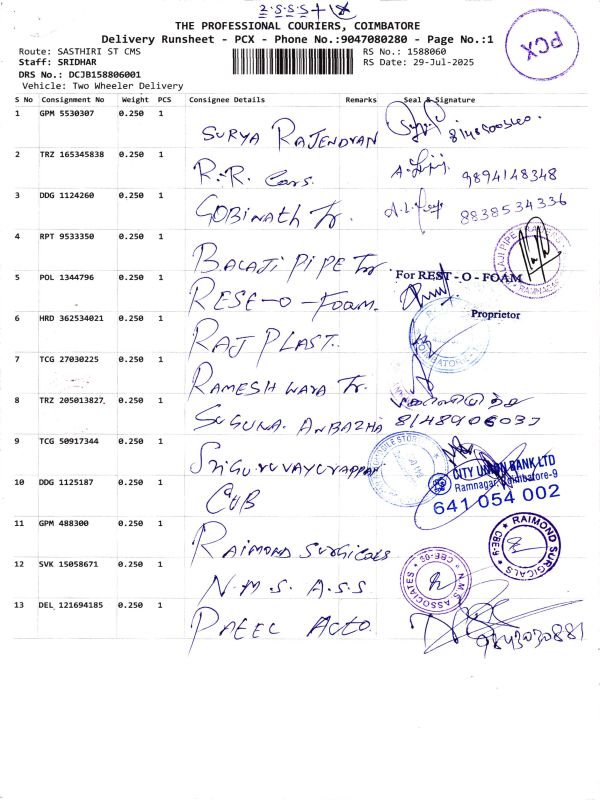 THE PROFESSIONAL COURIERS, COIMBATORE
Delivery Runsheet - PCX - Phone No.:9047080280 - Page No.:1
PCX
Route: SASTHIRI ST CMS
RS No.: 1588060
Staff: SRIDHAR
RS Date: 29-Jul-2025
DRS No.: DCJB158806001
Vehicle: Two Wheeler Delivery
S No Consignment No Weight PCS Consignee Details Remarks Seal & Signature
1 GPM 5530307 0.250 1 SURYA RAJENDRAN
2 TRZ 165345838 0.250 1 R.R. Cars. 9894148348
3 DDG 1124260 0.250 1 GOBINATH Tr. 8838534336
4 RPT 9533350 0.250 1 BALAJI PIPE Tr.
5 POL 1344796 0.250 1 RESE-O-FOAM. For REST - O - FOAM
Proprietor
6 HRD 362534021 0.250 1 RAJ PLAST.
7 TCG 27030225 0.250 1 RAMESHWARA Tr.
8 TRZ 205013827 0.250 1 SUGUNA. ANBAZHA 8148906037
9 TCG 50917344 0.250 1 SRIGURUVAYURAPPAN
10 DDG 1125187 0.250 1 CUB CITY UNION BANK LTD
Ramnagar, Coimbatore-9
641 054 002
11 GPM 488300 0.250 1 RAIMOND SURGICALS RAIMOND SURGICALS CBE-9
12 SVK 15058671 0.250 1 N.M.S. A.S.S N.M.S ASSOCIATES
13 DEL 121694185 0.250 1 PATEL AUTO 9843030881